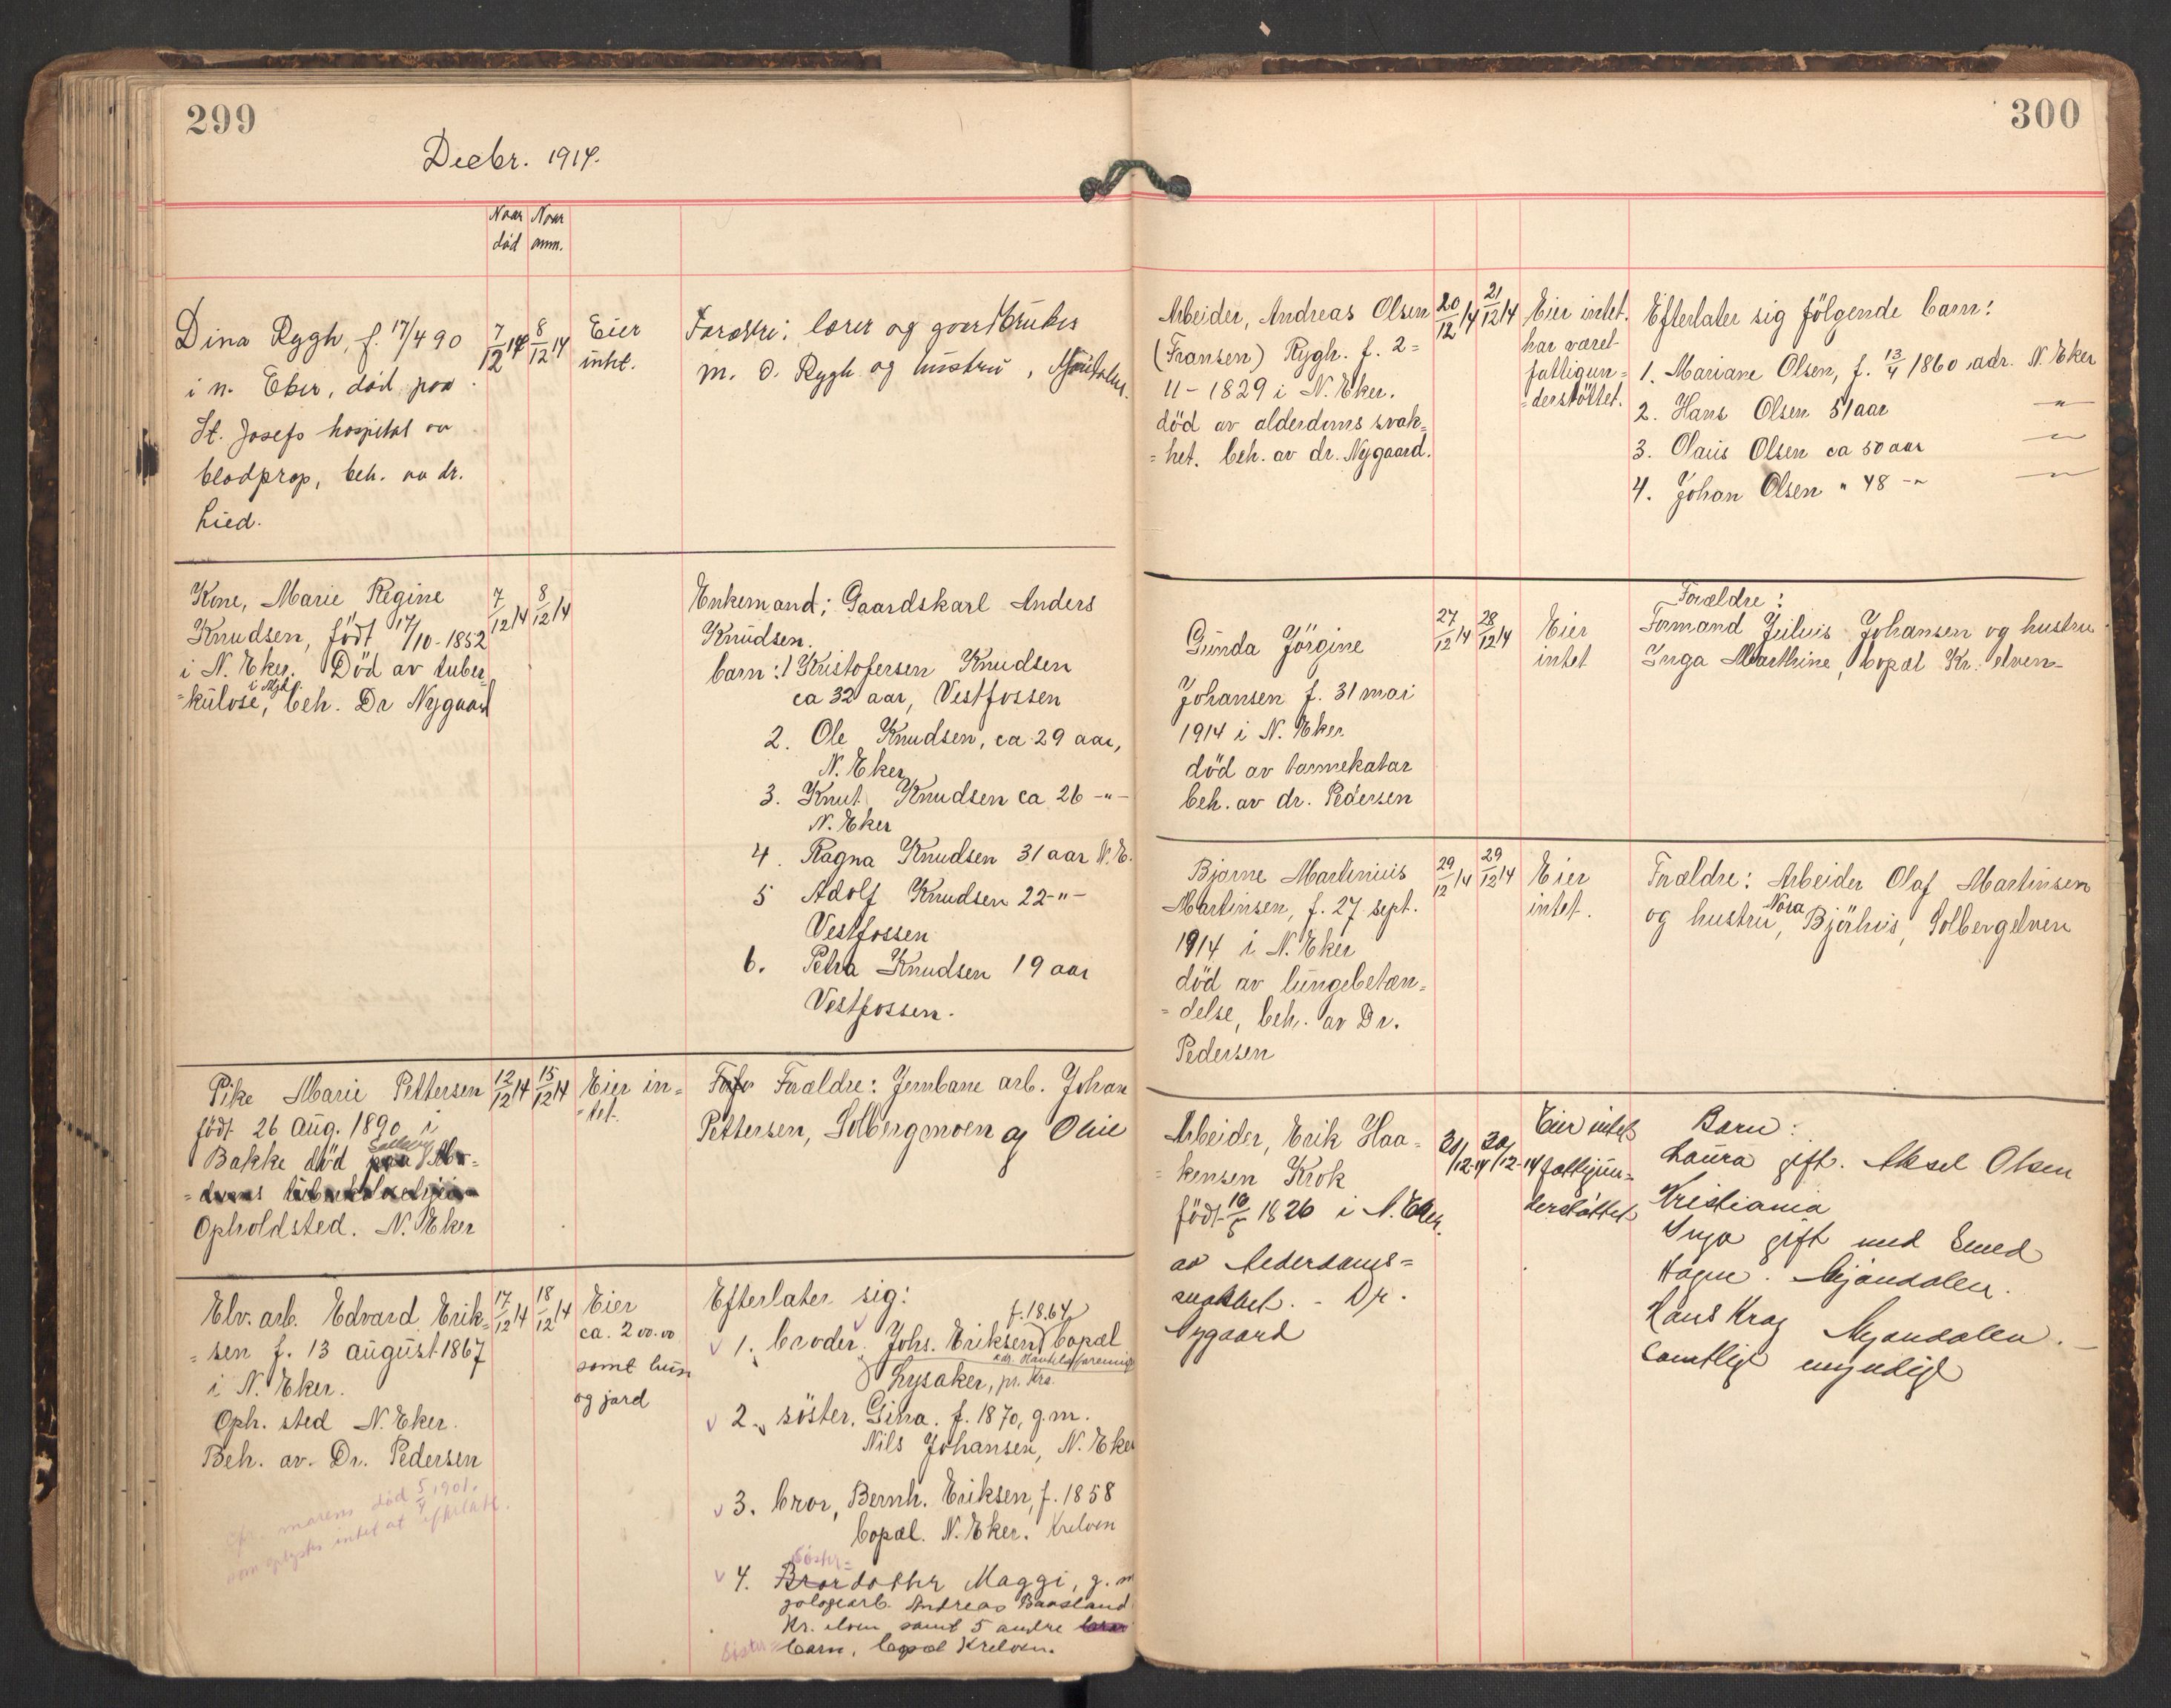 299
Decbr. 1914.
Naar Naar
død anm.
Dina Rygh, f. 17/4 90
i n. Eker, død paa
St. Josefs hospital av
blodprop, beh. av dr.
Lied.
7/12 14 8/12 14
Eier
intet.
Forældre: lærer og gaardbruker
m. O. Rygh og hustru, Mjøndalen.
Kone, Marie Regine
Knudsen, född 17/10-1852
i N. Eker. Död av tuber-
=kulose, i Mjd. beh. Dr Nygaard
7/12 14 8/12 14
Enkemand: Gaardskarl Anders
Knudsen.
barn: 1 Kristofersen Knudsen
ca 32 aar, Vestfossen
2. Ole Knudsen, ca 29 aar,
N. Eker
3. Knut Knudsen ca 26 -"-
N. Eker
4. Ragna Knudsen 31 aar N. E.
5 Adolf Knudsen 22 -"-
Vestfossen
6. Petra Knudsen 19 aar
Vestfossen.
Pike Marie Pettersen
född 26 aug. 1890 i
Bakke död paa
Opholdsted. N. Eker
12/12 14 15/12 14
Eier in=
=tet.
Forældre: Jernbane arb. Johan
Pettersen, Solbergmoen og Olive
Elv. arb. Edvard Erik-
=sen f. 13 august 1867
i N. Eker.
Oph. sted N. Eker.
Beh. av. Dr. Pedersen
død 5/4 1901.
som oplystes intet at efterlate.
17/12 14 18/12 14
Eier
ca. 200.00
samt hus
og jord
Efterlater sig:
f. 1864
1. broder Johs. Eriksen bopæl
Lysaker, pr. Kra.
2. söster, Gina. f. 1870, g.m.
Nils Johansen, N. Eker
3. bror, Bernh. Eriksen, f. 1858
bopæl. N. Eker. Krelven
Søster=
4. Brordotter Maggi, g. m
Andreas Baasland
Kr. elven samt 5 andre bror
Søster= barn, bopæl Krelven.
300
Arbeider, Andreas Olsen
(Fransen) Rygh. f. 2=
11 - 1829 i N. Eker.
död av alderdoms svak=
=het. beh. av dr. Nygaard.
20/12 14 21/12 14
Eier intet.
har været
fattigun=
=derstöttet.
Efterlater sig fölgende barn:
1. Mariane Olsen, f. 13/4 1860 adr. N. Eker
2. Hans Olsen 51 aar -"-
3. Olaus Olsen ca 50 aar -"-
4. Johan Olsen " 48 -"- -"-
Gunda Jörgine
Johansen f. 31 mai
1914 i N. Eker
död av tarmekatar
beh. av dr. Pedersen
27/12 14 28/12 14
Eier
intet
Forældre:
Formand Julius Johansen og hustru
Inga Marthine, bopæl Kr. elven-
Bjarne Martinius
Martinsen, f. 27 sept.
1914 i N. Eker
död av lungebetæn=
=delse, beh. av Dr.
Pedersen
29/12 14 29/12 14
Eier
intet.
Forældre: Arbeider Olaf Martinsen
og hustru, Nora Bjørhus, Solbergelven
Arbeider, Erik Haa=
=kensen Krok
född 10/5 1826 i N. Eker.
av Alderdoms=
svakhet. - Dr.
Nygaard
30/12-14 30/12-14
Eier intet
fattigun=
derstøttet
Barn:
Laura gift. Aksel Olsen
Kristiania
Inga gift med Smed
Hagne. Mjøndalen.
Hans Krog Mjøndalen.
samtlige myndige